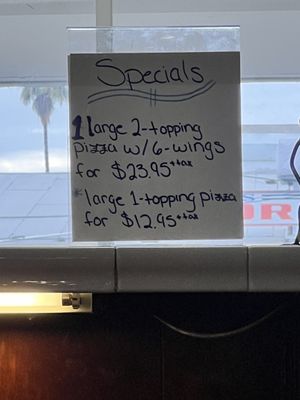 Specials
1 large 2-topping
pizza w/ 6-wings
for $23.95 +tax
*large 1-topping pizza
for $12.95 +tax